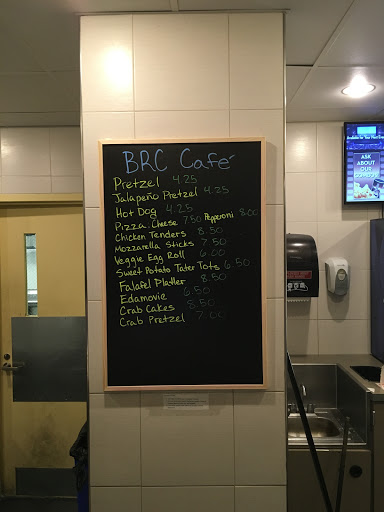 BRC Café
Pretzel 4.25
Jalapeño Pretzel 4.25
Hot Dog 4.25
Pizza. Cheese 7.50 Pepperoni 8.00
Chicken Tenders 8.50
Mozzarella Sticks 7.50
Veggie Egg Roll 6.00
Sweet Potato Tater Tots 6.50
Falafel Platter 8.50
Edamovie 6.50
Crab Cakes 8.50
Crab Pretzel 7.00
ASK
ABOUT
OUR